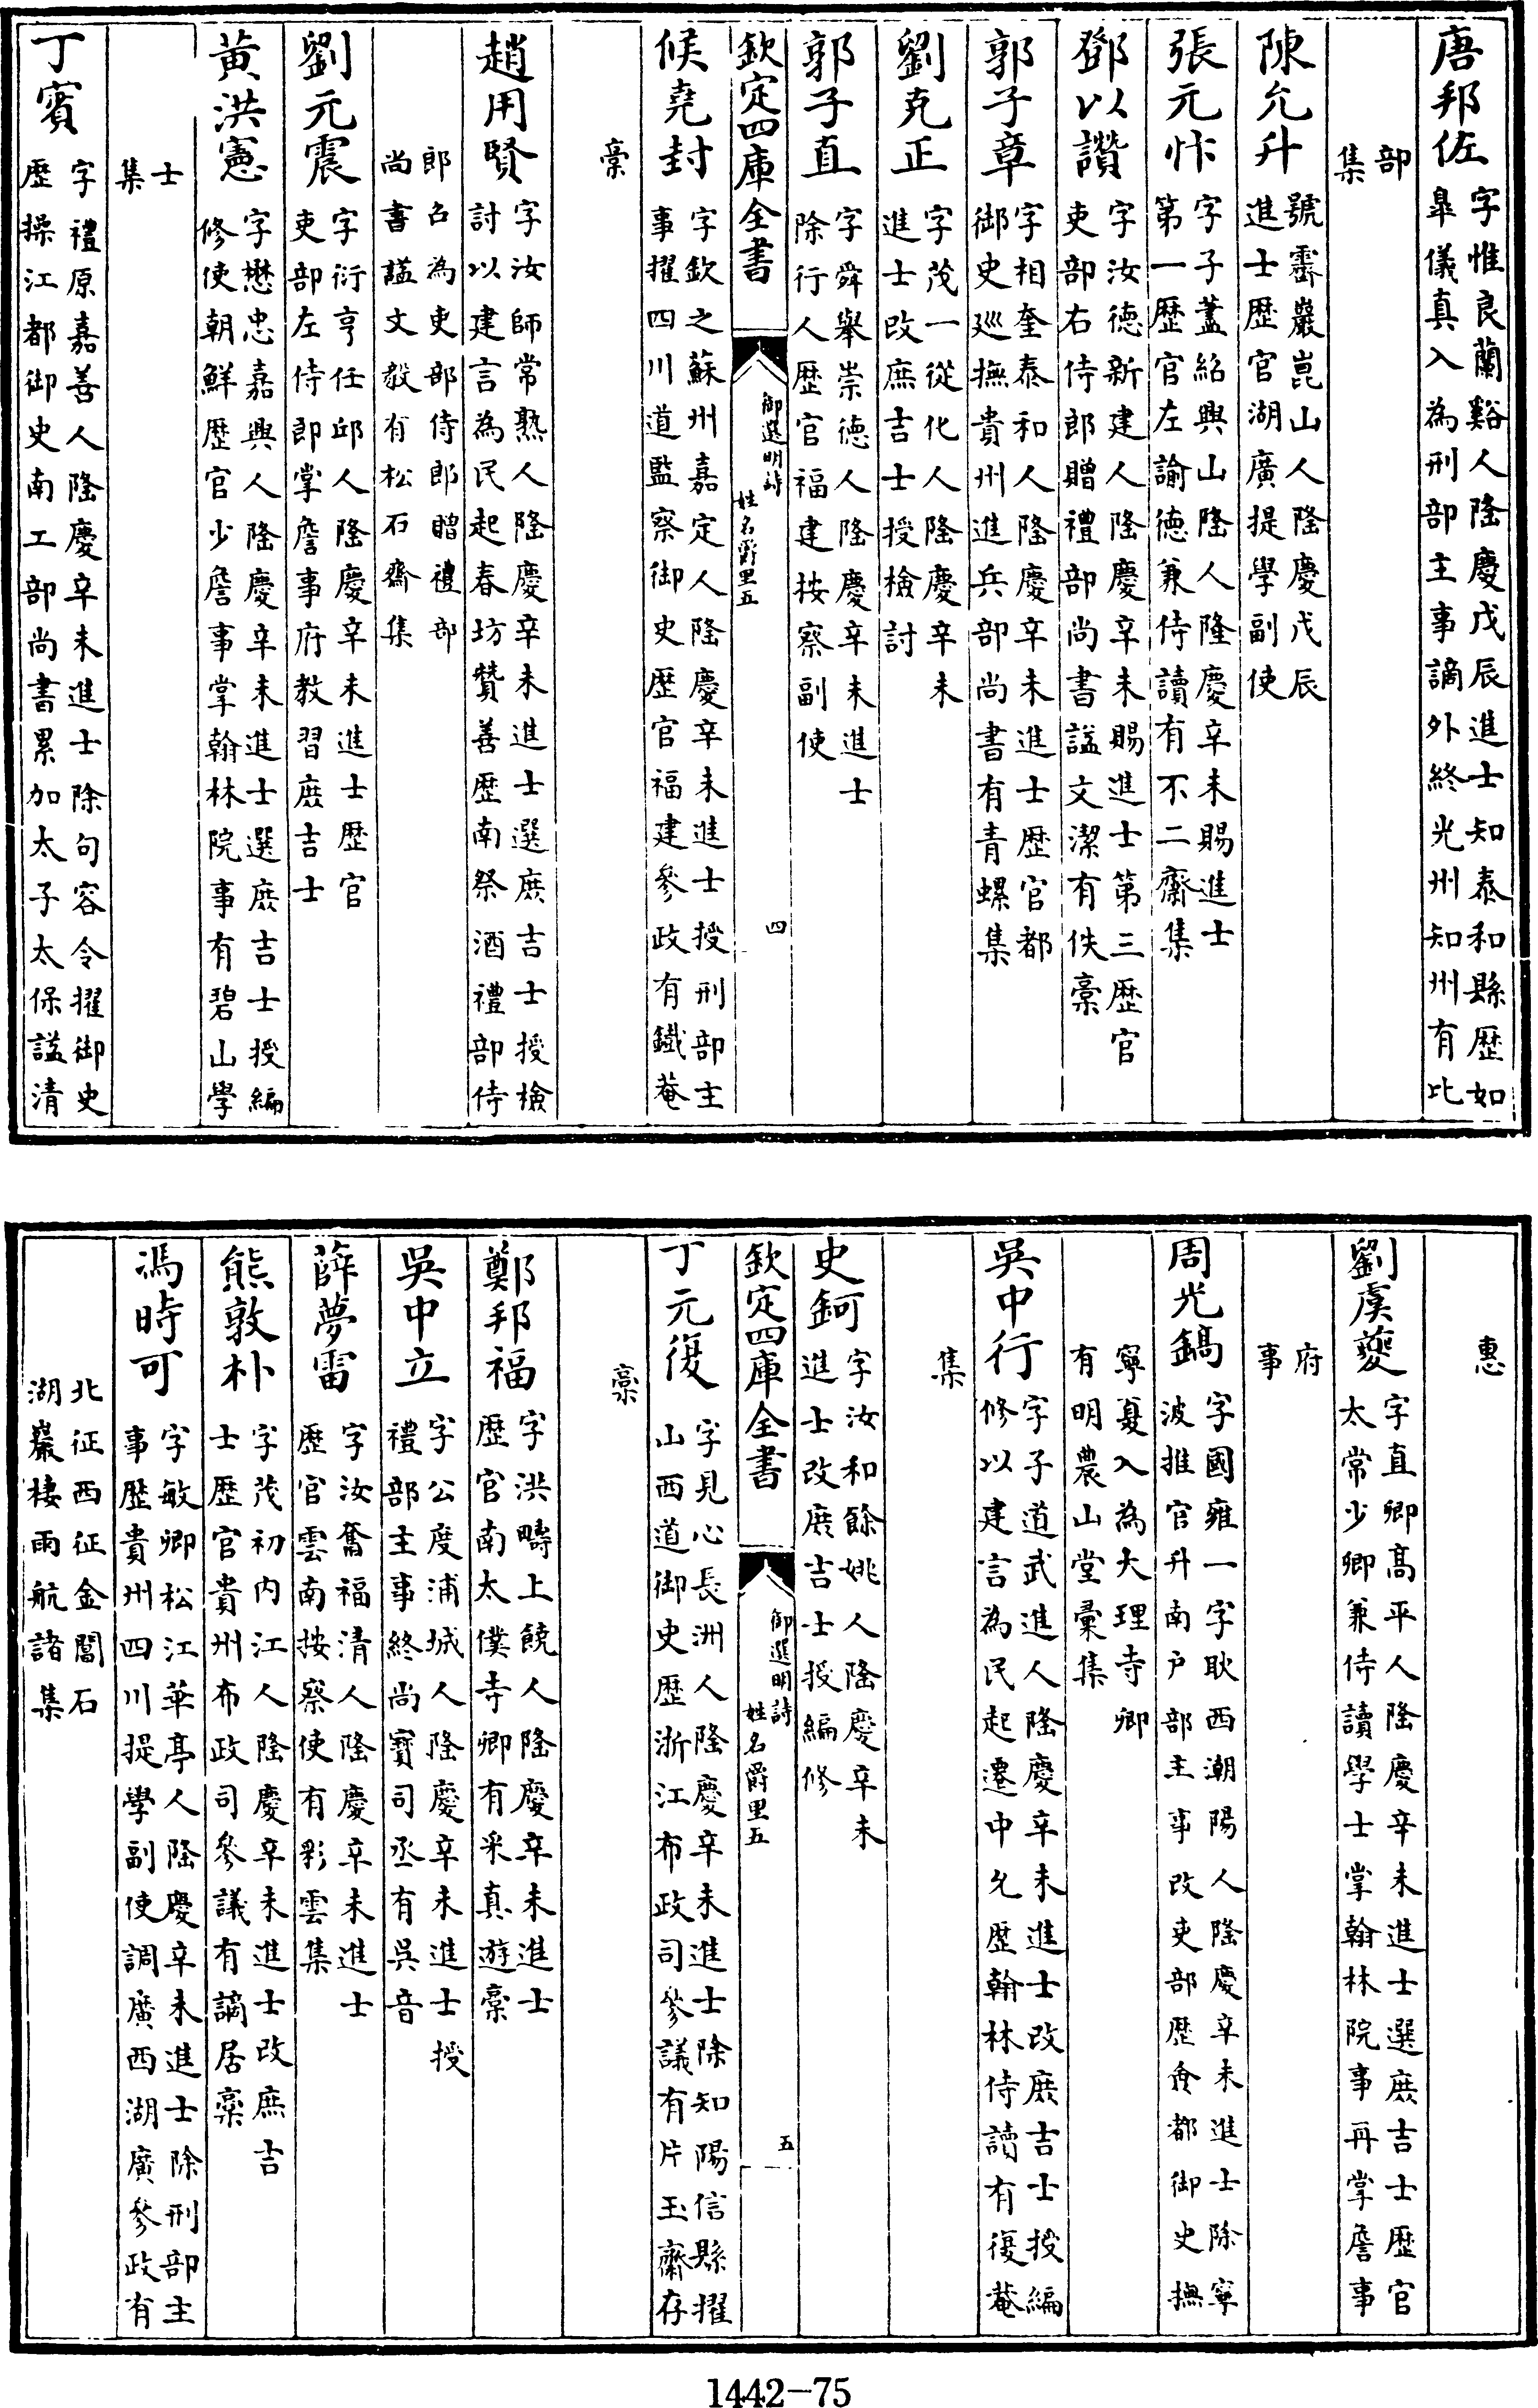 唐邦佐字惟良蘭谿人隆慶戊辰進士知泰和縣歷如
臯儀真入為刑部主事謫外終光州知州有比
部
集
陳允升號霽巖崑山人隆慶戊辰
進士歷官湖廣提學副使
張元忭字子藎紹興山陰人隆慶辛未賜進士
第一歷官左諭德兼侍讀有不二齋集
鄧以讚字汝德新建人隆慶辛未賜進士第三歷官
吏部右侍郎贈禮部尚書諡文潔有佚稾
郭子章字相奎泰和人隆慶辛未進士歷官都
御史廵撫貴州進兵部尚書有青螺集
劉克正字茂一從化人隆慶辛未
進士改庶吉士授檢討
郭子直字舜舉崇德人隆慶辛未進士
除行人歷官福建按察副使
欽定四庫全書
御選明詩
姓名爵里五
四
候堯封字欽之蘇州嘉定人隆慶辛未進士授刑部主
事擢四川道監察御史歷官福建參政有鐵菴
稾
趙用賢字汝師常熟人隆慶辛未進士選庶吉士授檢
討以建言為民起春坊贊善歷南祭酒禮部侍
郎召為吏部侍郎贈禮部
尚書諡文毅有松石齋集
劉元震字衍亨任邱人隆慶辛未進士歷官
吏部左侍郎掌詹事府教習庶吉士
黃洪憲字懋忠嘉興人隆慶辛未進士選庶吉士授編
修使朝鮮歷官少詹事掌翰林院事有碧山學
士
集
丁賓字禮原嘉善人隆慶辛未進士除句容令擢御史
歷操江都御史南工部尚書累加太子太保諡清
惠
劉虞夔字直卿高平人隆慶辛未進士選庶吉士歷官
太常少卿兼侍讀學士掌翰林院事再掌詹事
府
事
周光鎬字國雍一字耿西潮陽人隆慶辛未進士除寧
波推官升南戶部主事改吏部歷僉都御史撫
寧夏入為大理寺卿
有明農山堂彙集
吳中行字子道武進人隆慶辛未進士改庶吉士授編
修以建言為民起遷中允歷翰林侍讀有復菴
集
史鈳字汝和餘姚人隆慶辛未
進士改庶吉士授編修
欽定四庫全書
御選明詩
姓名爵里五
五
丁元復字見心長洲人隆慶辛未進士除知陽信縣擢
山西道御史歷浙江布政司參議有片玉齋存
稾
鄭邦福字洪疇上饒人隆慶辛未進士
歷官南太僕寺卿有采真遊稾
吳中立字公度浦城人隆慶辛未進士授
禮部主事終尚寳司丞有吳音
薛夢雷字汝奮福清人隆慶辛未進士
歷官雲南按察使有彩雲集
熊敦朴字茂初內江人隆慶辛未進士改庶吉
士歷官貴州布政司參議有謫居稾
馮時可字敏卿松江華亭人隆慶辛未進士除刑部主
事歷貴州四川提學副使調廣西湖廣參政有
北征西征金閶石
湖巖棲雨航諸集
1442-75